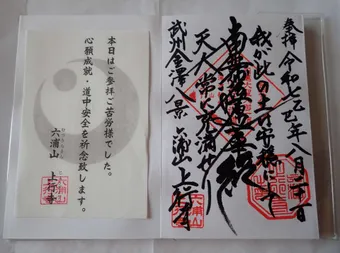 奉拝 令和七乙巳年八月二十日
我が此の土は安穏にして
南無妙法蓮華経
天人常に充満せり
武州金澤八景 六浦山 上行寺
本日はご参拝ご苦労様でした。
心願成就・道中安全を祈念致します。
六浦山 上行寺